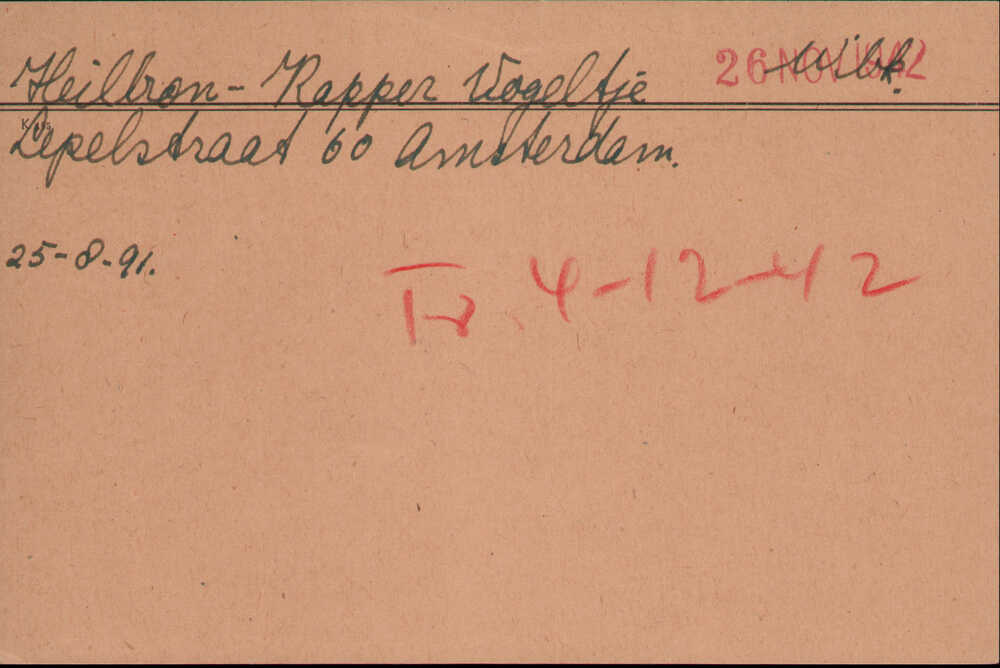 Heilbron - Rapper Vogeltje 26 NOV 1942
Lepelstraat 60 Amsterdam.
25-8-91.
Tr. 4-12-42